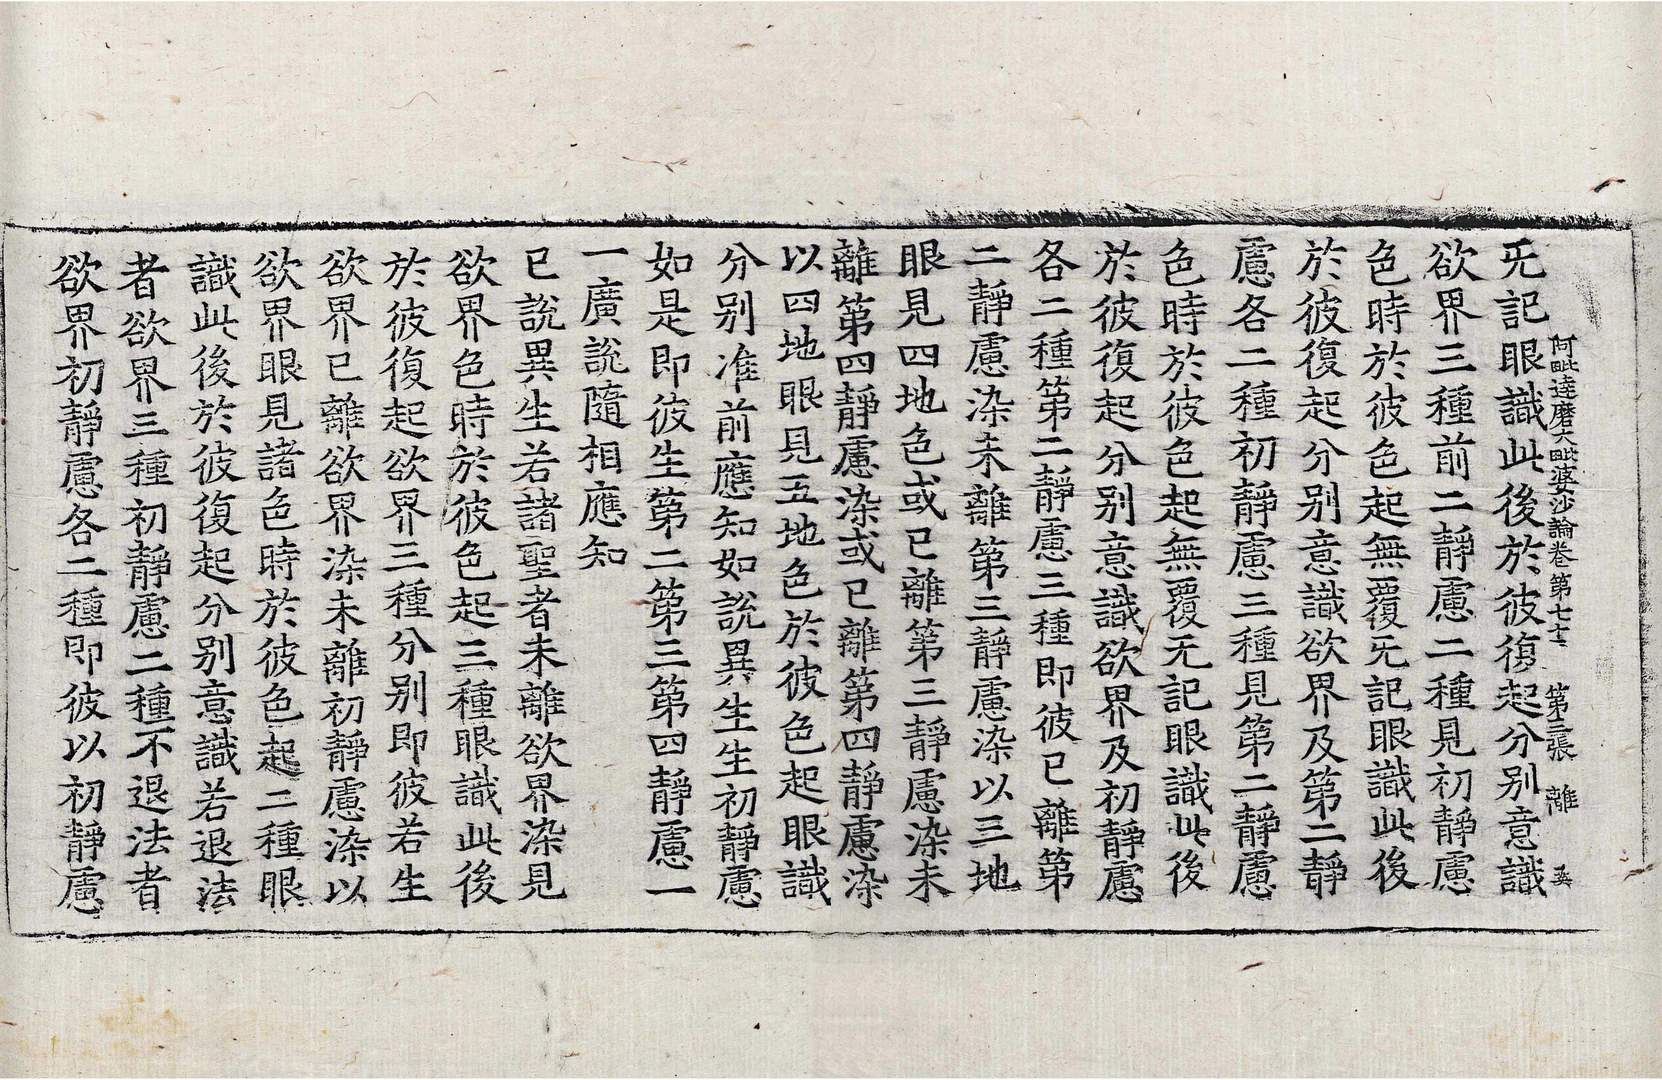 阿毗達磨大毗婆沙論卷第七十三 第三張 離
无記眼識此後於彼復起分别意識
欲界三種前二靜慮二種見初靜慮
色時於彼色起無覆无記眼識此後
於彼復起分别意識欲界及第二靜
慮各二種初靜慮三種見第二靜慮
色時於彼色起無覆无記眼識此後
於彼復起分别意識欲界及初靜慮
各二種第二靜慮三種即彼已離第
二靜慮染未離第三靜慮染以三地
眼見四地色或已離第三靜慮染未
離第四靜慮染或已離第四靜慮染
以四地眼見五地色於彼色起眼識
分别准前應知如說異生生初靜慮
如是即彼生第二第三第四靜慮一
一廣說隨相應知
已說異生若諸聖者未離欲界染見
欲界色時於彼色起三種眼識此後
於彼復起欲界三種分别即彼若生
欲界已離欲界染未離初靜慮染以
欲界眼見諸色時於彼色起二種眼
識此後於彼復起分别意識若退法
者欲界三種初靜慮二種不退法者
欲界初靜慮各二種即彼以初靜慮